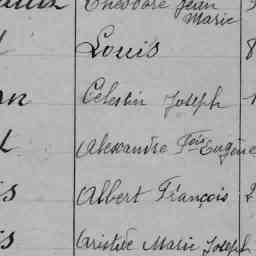 Théodore Jean
Marie
Louis
Celestin Joseph
Alexandre Fois Eugène
Albert François
Aristide Marie Joseph